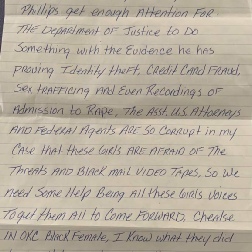 Phillips get enough Attention FOR
THE DEpartment OF Justice to DO
Something with the Evidence he has
proving Identity theft, Credit Card Fraud,
Sex trafficing AND Even Recordings OF
Admission to Rape, The Asst. U.S Attorneys
AND Federal Agents ARE So Corrupt in my
CASE that these Girls ARE AFRAID OF THE
Threats AND Black mail Video Tapes, So We
need Some Help Being All these Girls Voices
To get them All to Come FORWARD, Chealse
IN OKC Black Female, I Know what they did